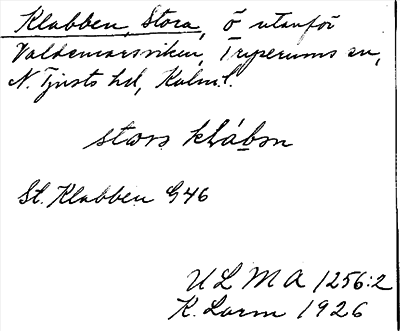 Klabben, Stora, ö utanför
Valdemarsviken, Tryserums sn,
N. Tjusts hd, Kalm. l.
stora klábən
St. Klabben G46
ULMA 1256:2
K. Larm 1926